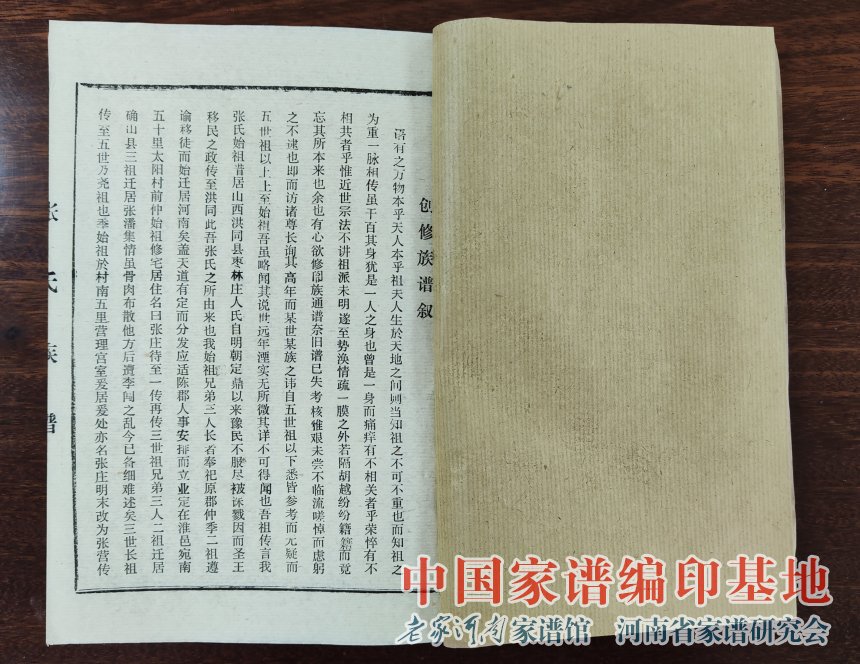 创修族谱叙
语有之万物本乎天人本乎祖夫人生於天地之间则当知祖之不可不重也而知祖之
为重一脉相传虽千百其身犹是一人之身也曾是一身而痛痒有不相关者乎荣悴有不
相共者乎惟近世宗法不讲祖派未明遂至势涣情疏一膜之外若隔胡越纷纷籍籍而竟
忘其所本来也余也有心欲修阖族通谱奈旧谱已失考核惟艰未尝不临流嗟悼而虑躬
之不逮也即而访诸尊长询其高年而某世某族之讳自五世祖以下悉皆参考而无疑而
五世祖以上上至始祖吾虽略闻其说世远年湮实无所微其详不可得闻也吾祖传言我
张氏始祖昔居山西洪同县枣林庄人氏自明朝定鼎以来豫民不服尽被诛戮因而圣王
移民之政传至洪同此吾张氏之所由来也我始祖兄弟三人长者奉祀原郡仲季二祖遵
谕移徒而始迁居河南矣盖天道有定而分发应适陈郡人事安排而立业定在淮邑宛南
五十里太阳村前仲始祖修宅居住名曰张庄待至一传再传三世祖兄弟三人二祖迁居
确山县三祖迁居张潘集情虽骨肉布散他方后遭李闯之乱今已备细难述矣三世长祖
传至五世乃尧祖也季始祖於村南五里营理宫室爰居爰处亦名张庄明末改为张营传
张氏族谱
中国家谱编印基地
老家河南家谱馆 河南省家谱研究会